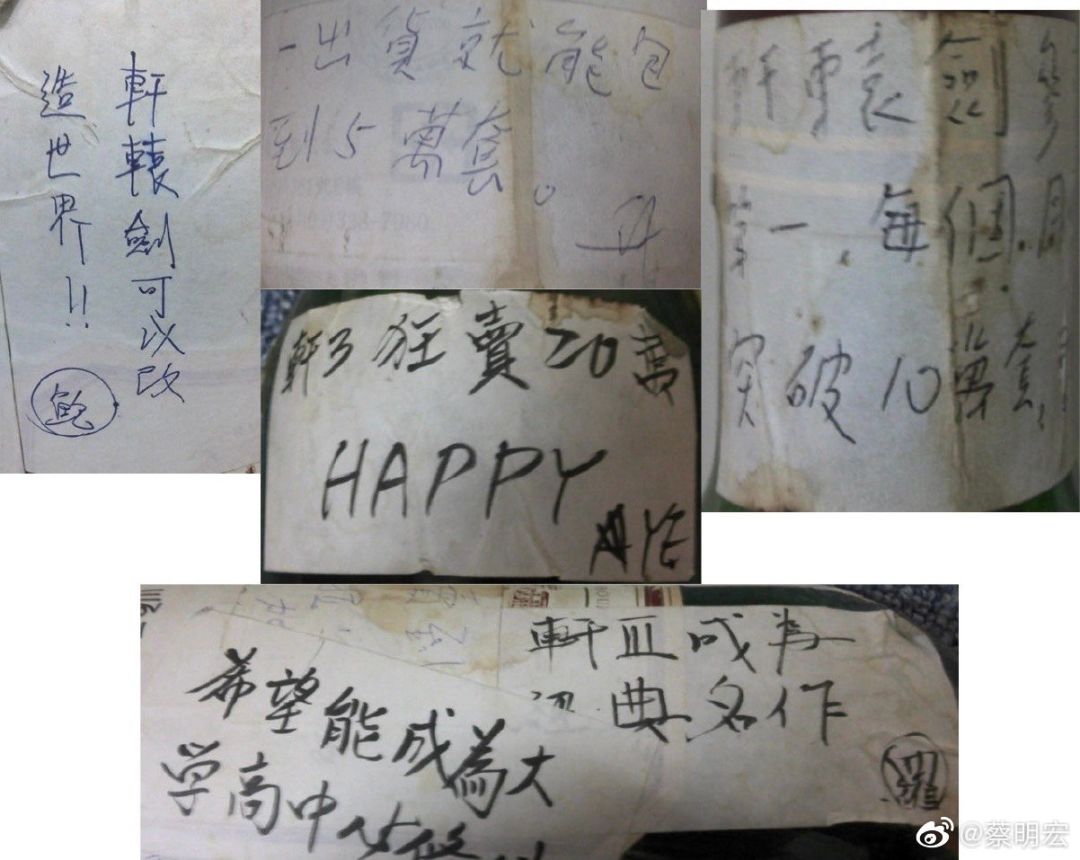 軒轅劍可以改
造世界!!
鮑
一出貨就能包
到5萬套。
軒轅劍參
第一,每個月
突破10萬套,
軒3狂賣20萬
HAPPY
YE
軒Ⅲ成為
典名作
羅
希望能成為大
学高中必修
@蔡明宏